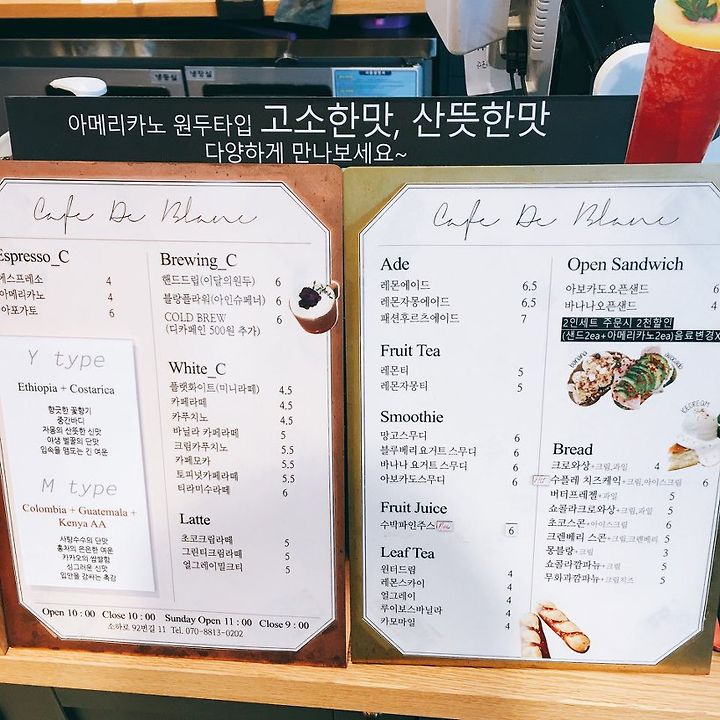 냉동실
냉장실
아메리카노 원두타입 고소한맛, 산뜻한맛
다양하게 만나보세요~
Cafe De Blanc
Espresso_C
에스프레소 4
아메리카노 4
아포가토 6
Y type
Ethiopia + Costarica
향긋한 꽃향기
중간바디
자몽의 산뜻한 신맛
야생 벌꿀의 단맛
입속을 맴도는 긴 여운
M type
Colombia + Guatemala +
Kenya AA
사탕수수의 단맛
홍차의 은은한 여운
카카오의 쌉쌀함
싱그러운 신맛
입안을 감싸는 촉감
Brewing_C
핸드드립(이달의원두) 6
블랑플라워(아인슈페너) 6
COLD BREW 6
(디카페인 500원 추가)
White_C
플랫화이트(미니라떼) 4.5
카페라떼 4.5
카푸치노 4.5
바닐라 카페라떼 5
크림카푸치노 5.5
카페모카 5.5
토피넛카페라떼 5.5
티라미수라떼 6
Latte
초코크림라떼 5
그린티크림라떼 5
얼그레이밀크티 5
Open 10 : 00 Close 10 : 00 Sunday Open 11 : 00 Close 9 : 00
소하로 92번길 11 Tel. 070-8813-0202
Cafe De Blanc
Ade
레몬에이드 6.5
레몬자몽에이드 6.5
패션후르츠에이드 7
Fruit Tea
레몬티 5
레몬자몽티 5
Smoothie
망고스무디 6
블루베리요거트 스무디 6
바나나 요거트 스무디 6
아보카도스무디 6
Fruit Juice
수박파인주스 New 6
Leaf Tea
윈터드림 4
레몬스카이 4
얼그레이 4
루이보스바닐라 4
카모마일 4
Open Sandwich
아보카도오픈샌드
바나나오픈샌드 6
2인세트 주문시 2천할인
(샌드2ea+아메리카노2ea)음료변경X
banana
avocado
ICECREAM
Bread
크로와상+크림,과일 4
수플레 치즈케익+크림,아이스크림 6
버터프레첼+과일 5
쇼콜라크로와상+크림,과일 5
초코스콘+아이스크림 6
크렌베리 스콘+크림,크렌베리 5
몽블랑+크림 3
쇼콜라깜파뉴+크림 5
무화과깜파뉴+크림치즈 5